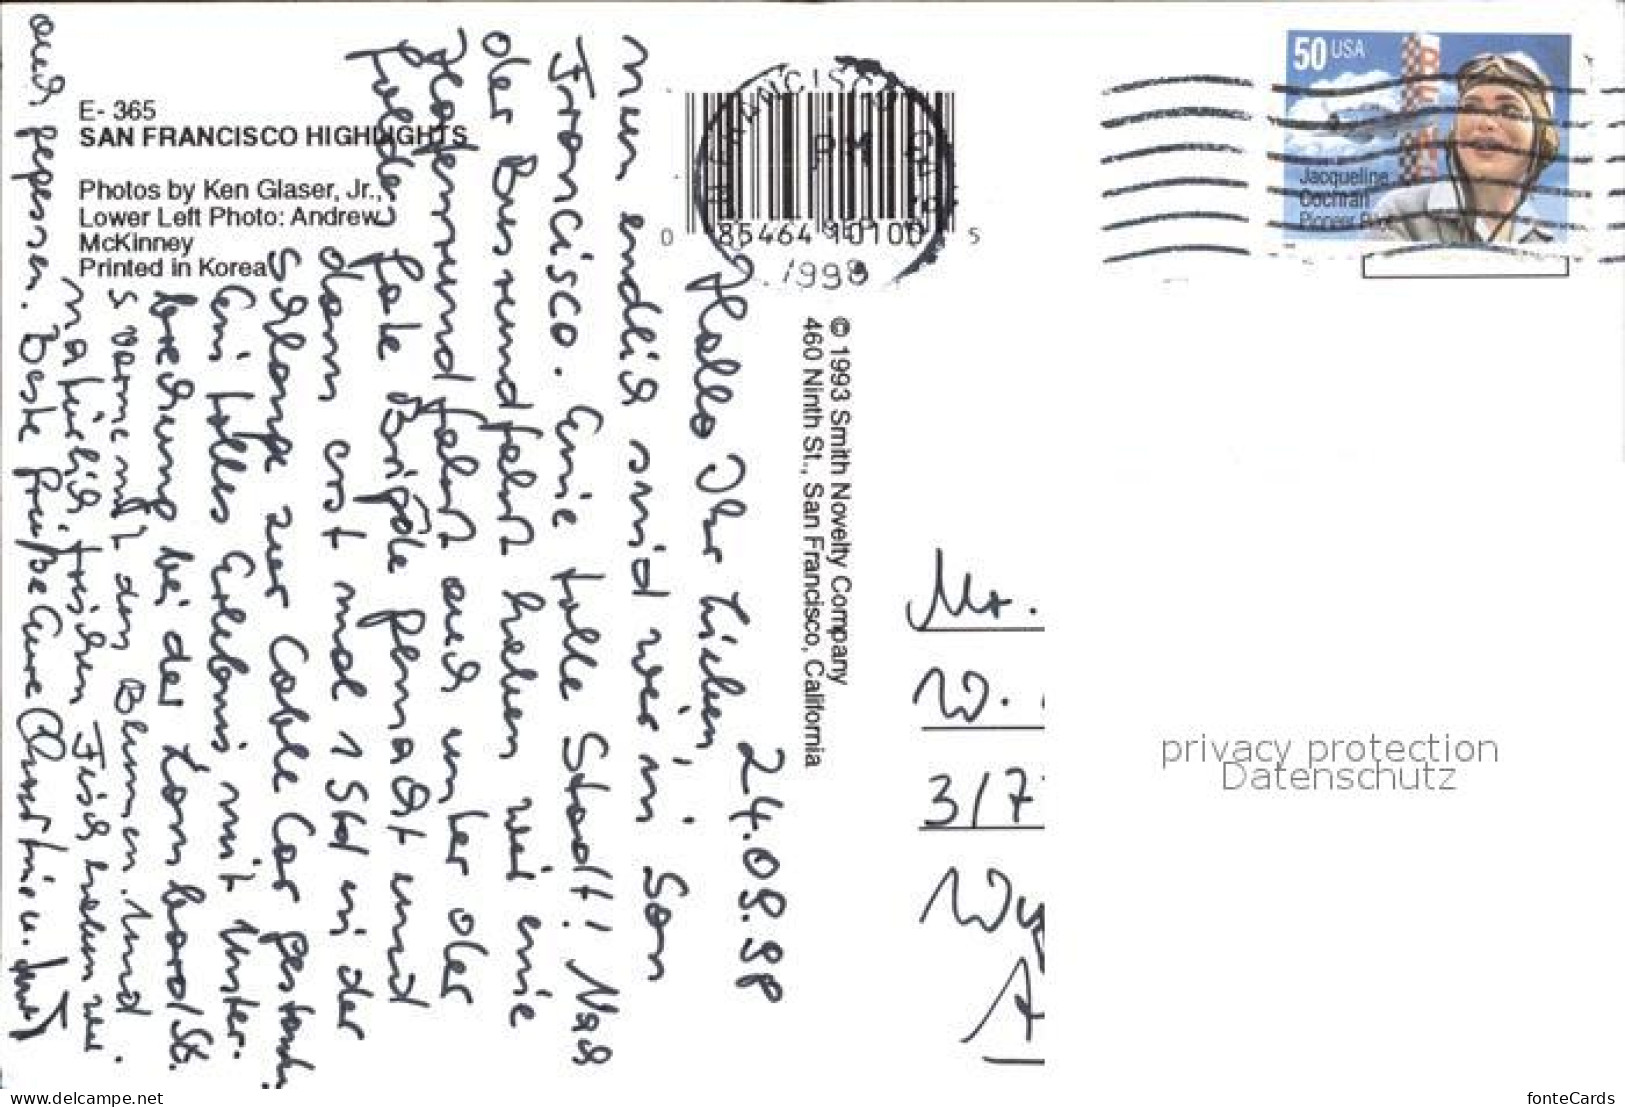 E- 365
SAN FRANCISCO HIGHLIGHTS
Photos by Ken Glaser, Jr.,
Lower Left Photo: Andrew
McKinney
Printed in Korea
SAN FRANCISCO CA
PM
1998
0 85464 10100 5
50 USA
Jacqueline
Cochran
Pioneer Pilot
© 1993 Smith Novelty Company
460 Ninth St., San Francisco, California
24.09.98
Hallo Ihr Lieben,
nun endlich sind wir in San
Francisco. Eine tolle Stadt! Nach
der Busrundfahrt haben wir eine
Hafenrundfahrt auch unter der
Golden Gate Bridge gemacht und
dann erst mal 1 Std in der
Schlange zur Cable Car gestanden.
Ein tolles Erlebnis mit Unter-
brechung bei der Lombard St.
mit den Blumen. Und
natürlich frischen Fisch haben wir
auch gegessen. Beste Grüße Eure Christine u.
Mr.
W.
3/7
A
privacy protection
Datenschutz
www.delcampe.net
fonteCards